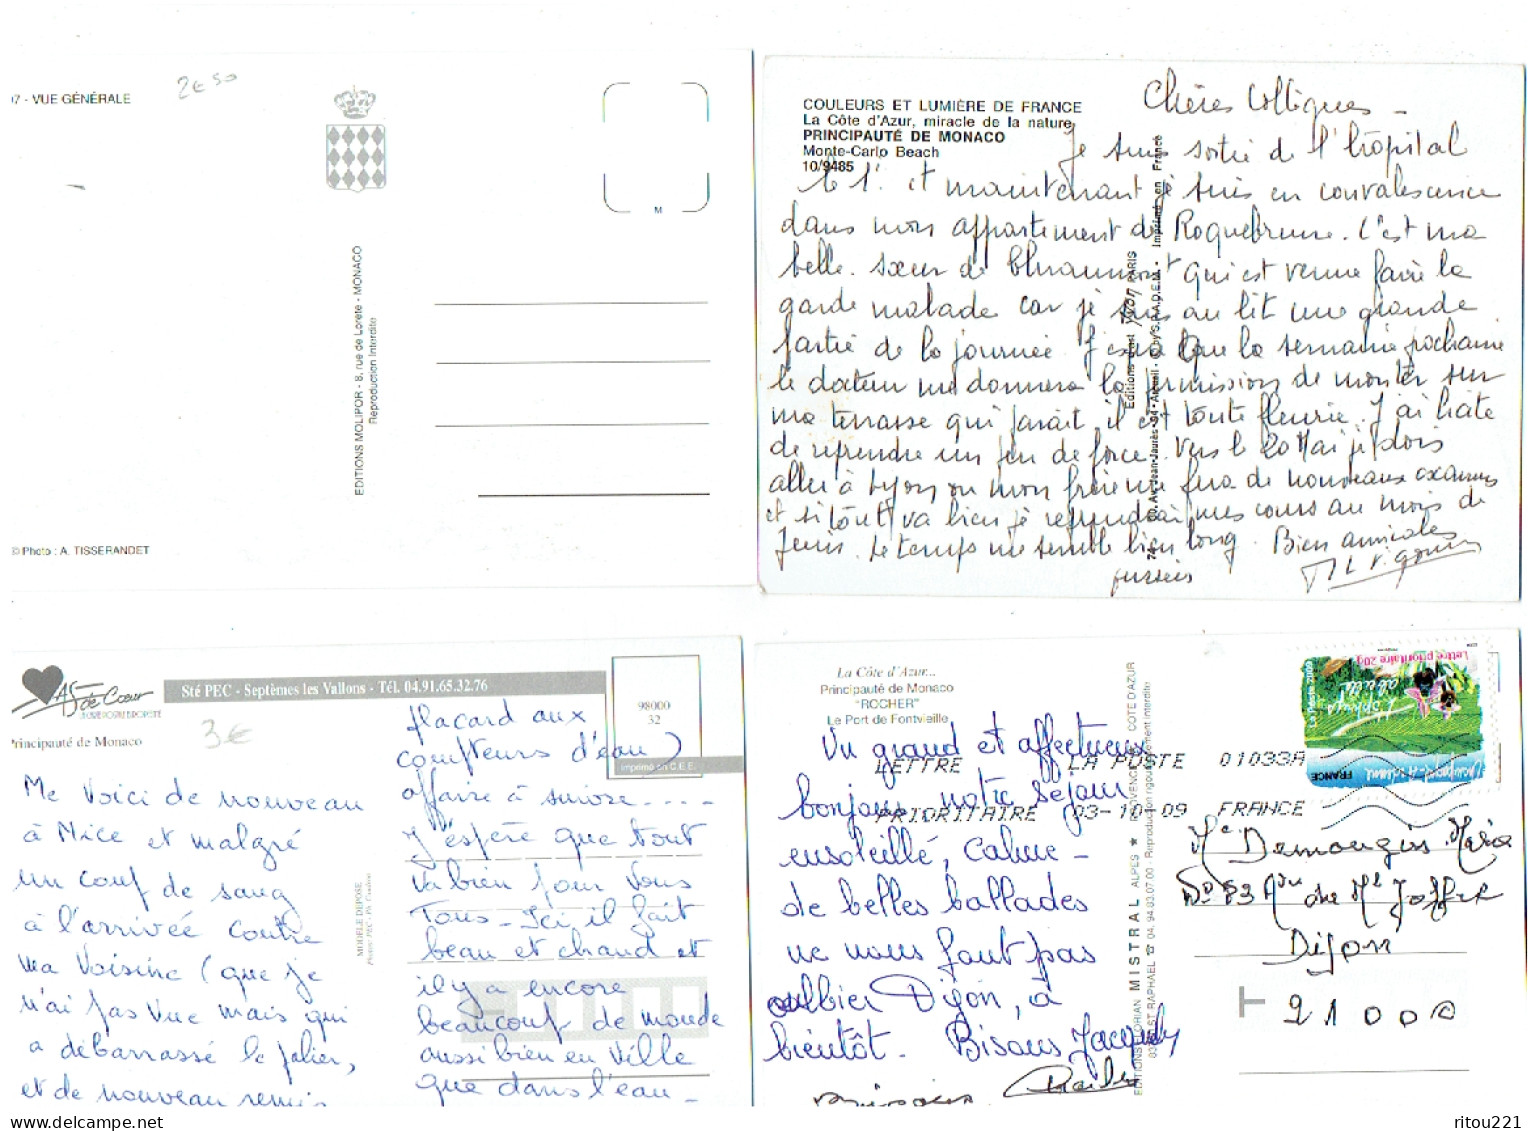 07 - VUE GÉNÉRALE
2€50
M
EDITIONS MOLIPOR - 8, rue de Lorete - MONACO
Reproduction Interdite
© Photo : A. TISSERANDET
COULEURS ET LUMIÈRE DE FRANCE
La Côte d'Azur, miracle de la nature
PRINCIPAUTÉ DE MONACO
Monte-Carlo Beach
10/9485
Chères Collègues -
Je suis sortie de l'hôpital
le 1er et maintenant je suis en convalescence
dans mon appartement de Roquebrune. C'est ma
belle-sœur de qui est venue faire la
garde malade car je suis au lit une grande
partie de la journée. J'espère que la semaine prochaine
le docteur me donnera la permission de monter sur
ma terrasse qui paraît-il est toute fleurie. J'ai hâte
de reprendre un peu de force. Vers le 20 Mai je dois
aller à Lyon ou mon frère me fera de nouveaux examens
et si tout va bien je reprendrai mes cours au mois de
Juin. Le temps me semble bien long. Bien amicales
pensées
Editions d'art YVON PARIS
Av. Jean-Jaurès - 94 - Arcueil - © by S.P.A.D.E.M. - Imprimé en France
As de Cœur
Sté PEC - Septèmes les Vallons - Tél. 04.91.65.32.76
98000
32
Imprimé en C.E.E.
Principauté de Monaco
3€
Me voici de nouveau
à Nice et malgré
un coup de sang
à l'arrivée contre
ma voisine (que je
n'ai pas vue mais qui
a débarrassé le palier,
et de nouveau remis
placard aux
compteurs d'eau)
affaire à suivre....-
J'espère que tout
va bien pour vous
Tous - Ici il fait
beau et chaud et
il y a encore
beaucoup de monde
aussi bien en ville
que dans l'eau -
MODELE DEPOSE
La Côte d'Azur...
Principauté de Monaco
"ROCHER"
Le Port de Fontvieille
Un grand et affectueux
bonjour, notre séjour
ensoleillé, calme -
de belles ballades
ne nous font pas
oublier Dijon, à
bientôt. Bisous Jacquely
Bisous Charles
EDITIONS FLORIAN MISTRAL ALPES ★ PROVENCE ★ COTE D'AZUR
83700 ST-RAPHAËL ☎ 04.94.03.07.00 - Reproduction rigoureusement interdite
LETTRE LA POSTE 01033A
PRIORITAIRE 03-10-09 FRANCE
Lettre prioritaire 20g
La Poste 2009
L'Ophrys
abeille
FRANCE
Champagne-Ardenne
Me Demougin Marie
No 83 Avue du Mal Joffre
Dijon
T
21000
www.delcampe.net
ritou221